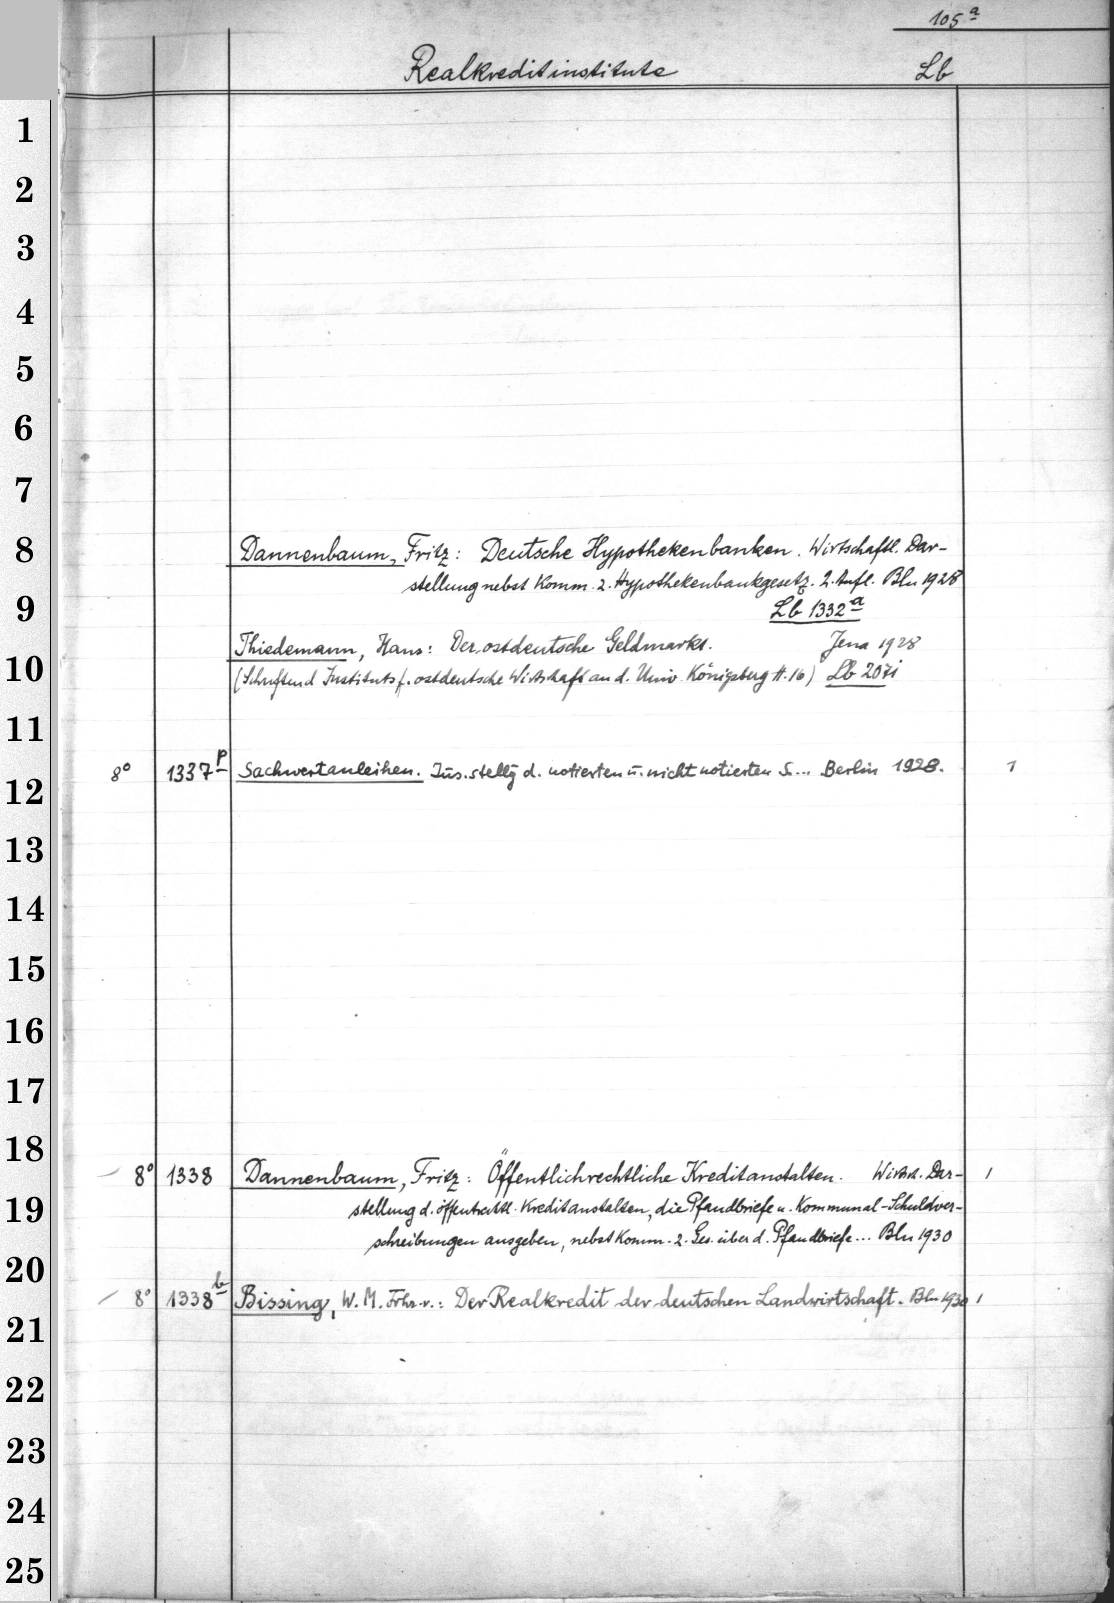 105 a
Realkreditinstitute Lb
1
2
3
4
5
6
7
8 Dannenbaum, Fritz: Deutsche Hypothekenbanken. Wirtschaftl. Dar-
stellung nebst Komm. z. Hypothekenbankgesetz. 2. Aufl. Bln 1928
9 Lb 1332a
Thiedemann, Hans: Der ostdeutsche Geldmarkt. Jena 1928
10 (Schriften d. Instituts f. ostdeutsche Wirtschaft an d. Univ. Königsberg H. 16) Lb 207i
11
8° 1337p Sachwertanleihen. Zus.stellg d. notierten u. nicht notierten S... Berlin 1928. 1
12
13
14
15
16
17
18
8° 1338 Dannenbaum, Fritz: Öffentlichrechtliche Kreditanstalten. Wirtsch. Dar- 1
19 stellung d. öffentrechtl. Kreditanstalten, die Pfandbriefe u. Kommunal-Schuldver-
schreibungen ausgeben, nebst Komm. z. Ges. über d. Pfandbriefe... Bln 1930
20
8° 1338b Bissing, W. M. Frhr. v.: Der Realkredit der deutschen Landwirtschaft. Bln 1930 1
21
22
23
24
25